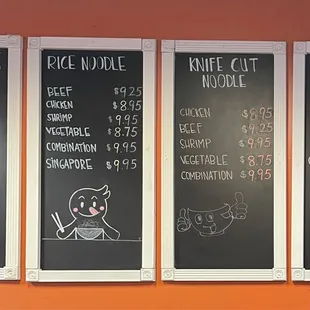 RICE NOODLE
BEEF $9.25
CHICKEN $8.95
SHRIMP $9.95
VEGETABLE $8.75
COMBINATION $9.95
SINGAPORE $9.95
KNIFE CUT
NOODLE
CHICKEN $8.95
BEEF $9.25
SHRIMP $9.95
VEGETABLE $8.75
COMBINATION $9.95